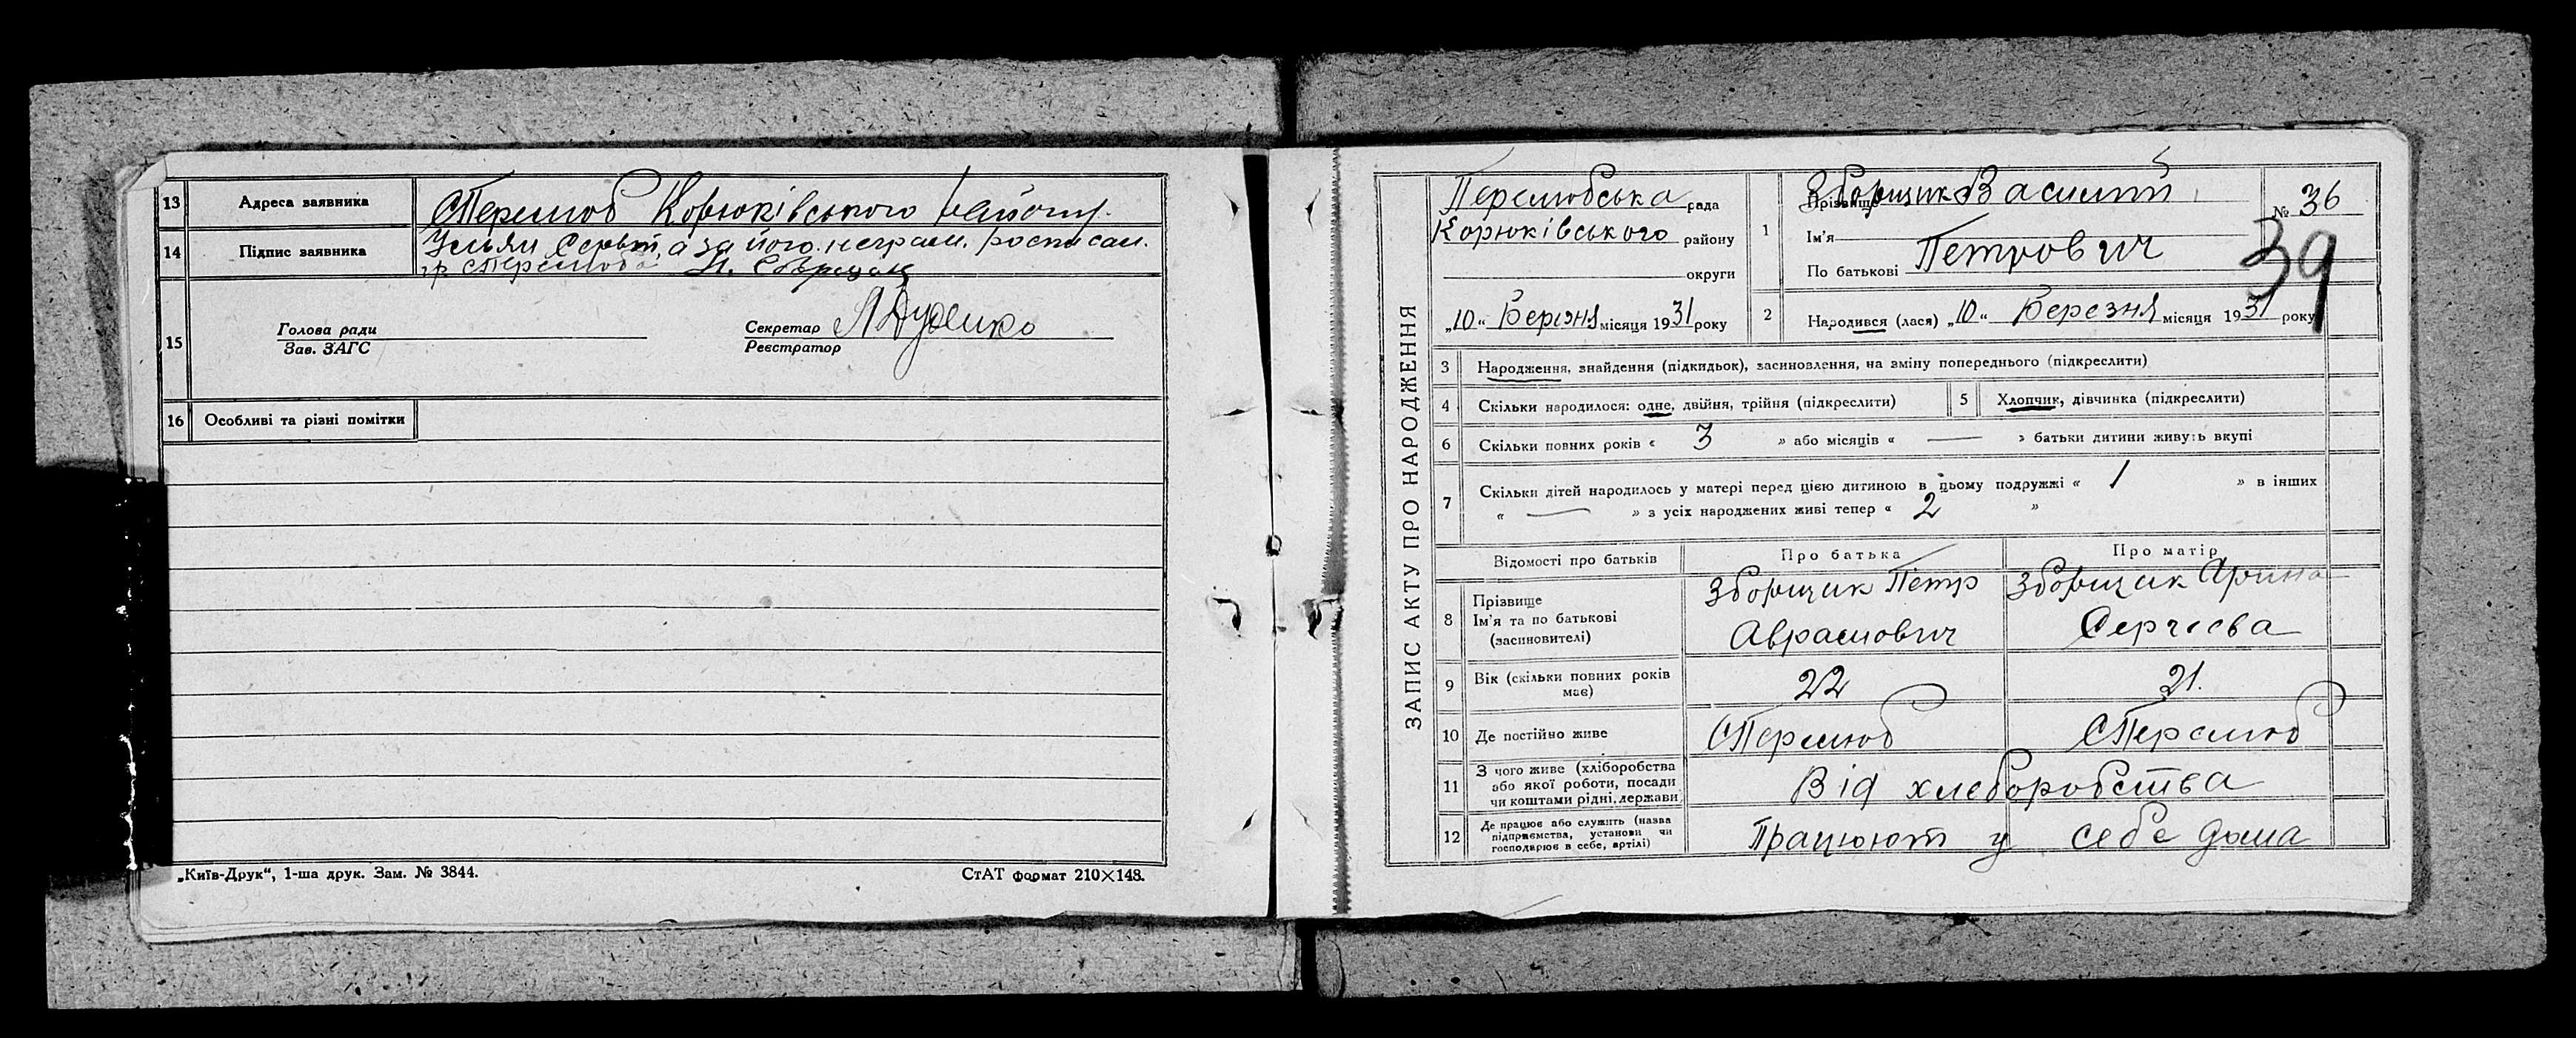 13 Адреса заявника С Перелюб Корюківського району.
14 Підпис заявника а за його неграм. росписал.
гр. с Перелюба
15 Голова ради
Зав. ЗАГС
Секретар
Реєстратор
16 Особливі та різні помітки
„Київ-Друк“, 1-ша друк. Зам. № 3844.
СтАТ формат 210×148.
ЗАПИС АКТУ ПРО НАРОДЖЕННЯ
Перелюбська рада
Корюківського району
округи
„10“ Березня місяця 1931 року
1 Прізвище Зборщик Василій
Ім'я
По батькові Петрович
№ 36
39
2 Народився (лася) „10“ Березня місяця 1931 року
3 Народження, знайдення (підкидьок), засиновлення, на зміну попереднього (підкреслити)
4 Скільки народилося: одне, двійня, трійня (підкреслити)
5 Хлопчик, дівчинка (підкреслити)
6 Скільки повних років « 3 » або місяців « — » батьки дитини живуть вкупі
7 Скільки дітей народилось у матері перед цією дитиною в цьому подружжі « 1 » в інших
« — » з усіх народжених живі тепер « 2 »
Відомості про батьків Про батька Про матір
8 Прізвище
Ім'я та по батькові
(засиновителі)
Зборщик Петр
Аврамович
Зборщик Арина
Сергєєва
9 Вік (скільки повних років
має)
22 21.
10 Де постійно живе С Перелюб С Перелюб
11 З чого живе (хліборобства
або якої роботи, посади
чи коштами рідні, держави
Від хлеборобства
12 Де працює або служить (назва
підприємства, установи чи
господарює в себе, артілі)
Працюют у себе дома